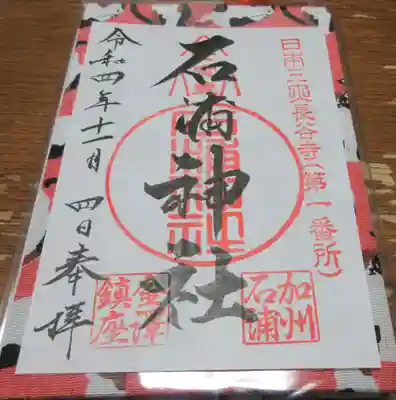 日本三所長谷寺(第一番所)
石浦神社
加州
石浦
鎮座
令和四年十一月四日奉拝